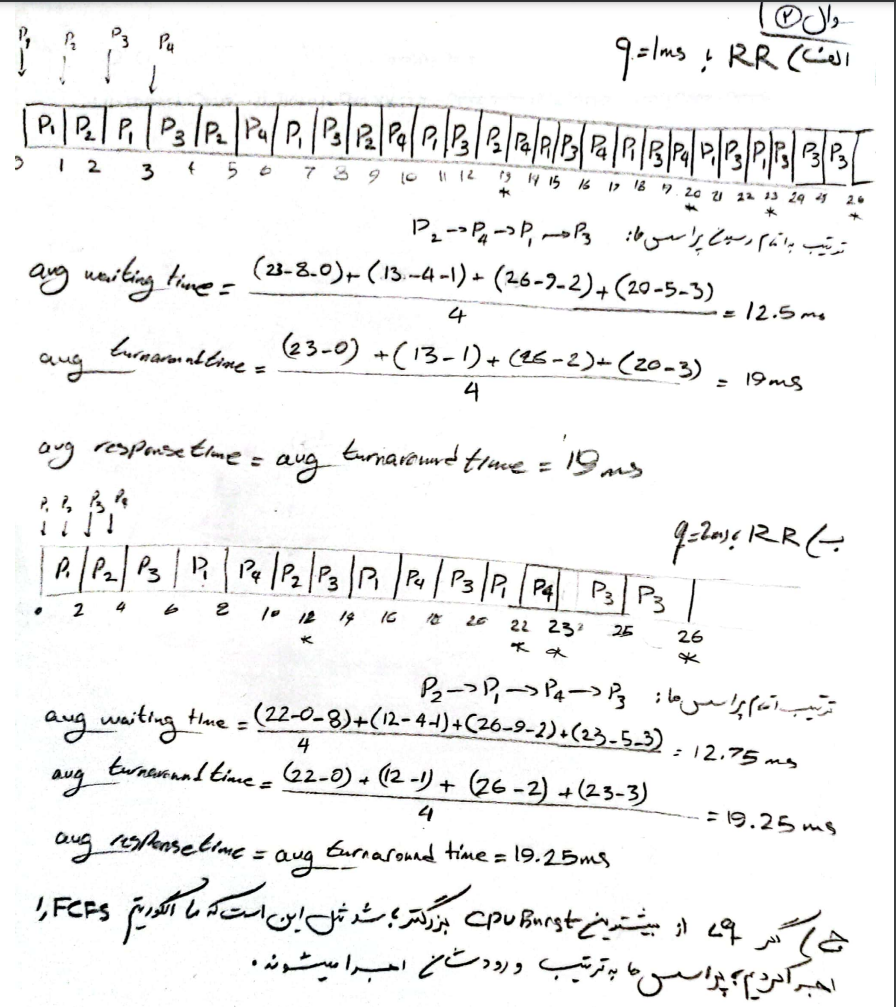 سوال ۲
الف) RR با q=1ms
P₁ P₂ P₃ P₄
P₁ P₂ P₁ P₃ P₂ P₄ P₁ P₃ P₂ P₄ P₁ P₃ P₂ P₄ P₁ P₃ P₄ P₁ P₃ P₄ P₁ P₃ P₁ P₃ P₃ P₃
0 1 2 3 4 5 6 7 8 9 10 11 12 13 14 15 16 17 18 19 20 21 22 23 24 25 26
* * * *
ترتیب به اتمام رسیدن پراسس ها: P₂ → P₄ → P₁ → P₃
avg waiting time = (23-8-0)+(13-4-1)+(26-9-2)+(20-5-3) / 4 = 12.5 ms
avg turnaround time = (23-0)+(13-1)+(26-2)+(20-3) / 4 = 19ms
avg response time = avg turnaround time = 19 ms
ب) RR با q=2ms
P₁ P₂ P₃ P₄
P₁ P₂ P₃ P₁ P₄ P₂ P₃ P₁ P₄ P₃ P₁ P₄ P₃ P₃
0 2 4 6 8 10 12 14 16 18 20 22 23 25 26
* * * *
ترتیب اتمام پراسس ها: P₂ → P₁ → P₄ → P₃
avg waiting time = (22-0-8)+(12-4-1)+(26-9-2)+(23-5-3) / 4 = 12.75 ms
avg turnaround time = (22-0)+(12-1)+(26-2)+(23-3) / 4 = 19.25 ms
avg response time = avg turnaround time = 19.25ms
ج) اگر q از بیشترین CPU Burst بزرگتر باشد مثل این است که ما الگوریتم FCFS را
اجرا کردیم؛ پراسس ها به ترتیب ورودشان اجرا میشوند.